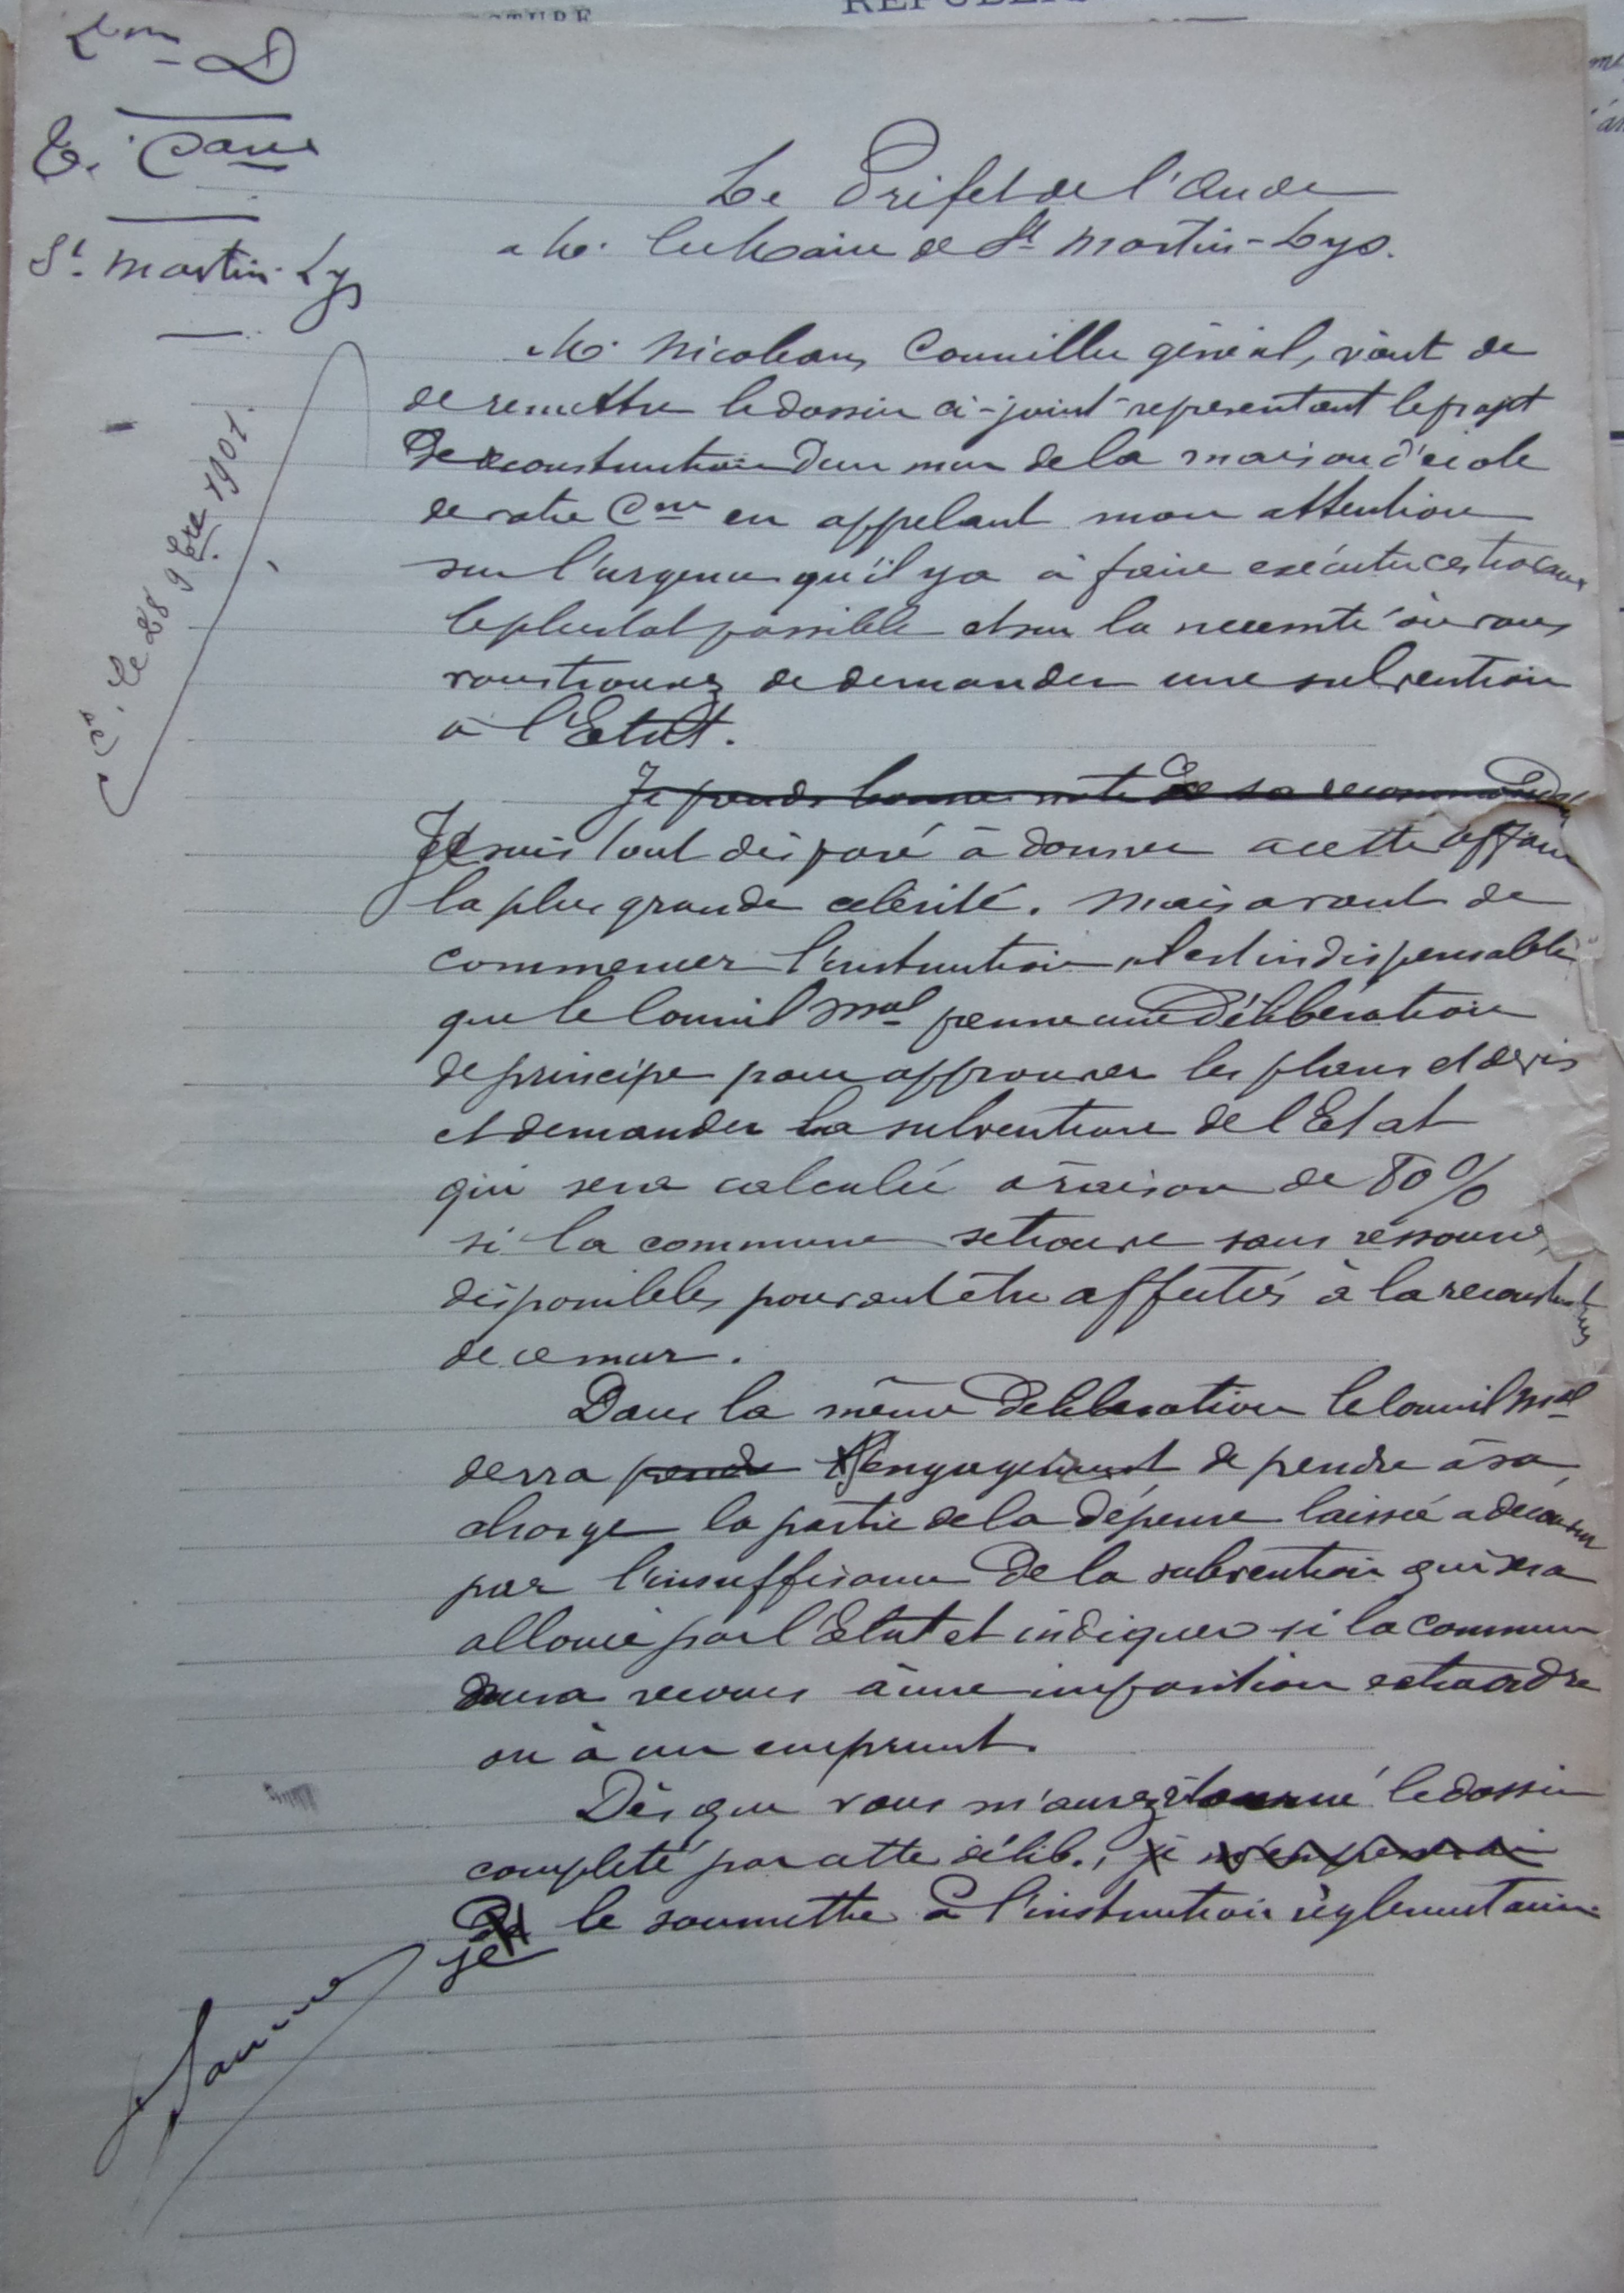 2me D
T. Caux
St. Martin-Lys
Cé. le 28 9bre 1901.
Le Préfet de l'Aude
à M. le Maire de St Martin-Lys.
M. Nicoleau, Conseiller général, vient de
de remettre le dossier ci-joint représentant le projet
De reconstruction d'un mur de la maison d'école
de votre Cne en appelant mon attention
sur l'urgence qu'il y a à faire exécuter ces travaux
le plus tot possible et sur la necessité où vous
vous trouvez de demander une subvention
à l'Etat.
Je prends bonne note de sa recommandation
Je suis tout disposé à donner a cette affaire
la plus grande célérité. Mais avant de
commencer l'instruction, il est indispensable
que le Conseil Mal prenne une Délibération
de principe pour approuver les plans et devis
et demander la subvention de l'Etat
qui sera calculée à raison de 80%
si la commune se trouve sans ressources
disponibles pouvant être affectées à la reconstruction
de ce mur.
Dans la même Délibération le Conseil Mal
devra prendre l'engagement de prendre à sa
charge la partie de la dépense laissée a découvert
par l'insuffisance De la subvention qui sera
allouée par l'Etat et indiquer si la commune
aura recours à une imposition extraordre
ou à un emprunt.
Dès que vous m'aurez retourné le dossier
complété par cette délib., je
De le soumettre à l'instruction réglementaire.
je